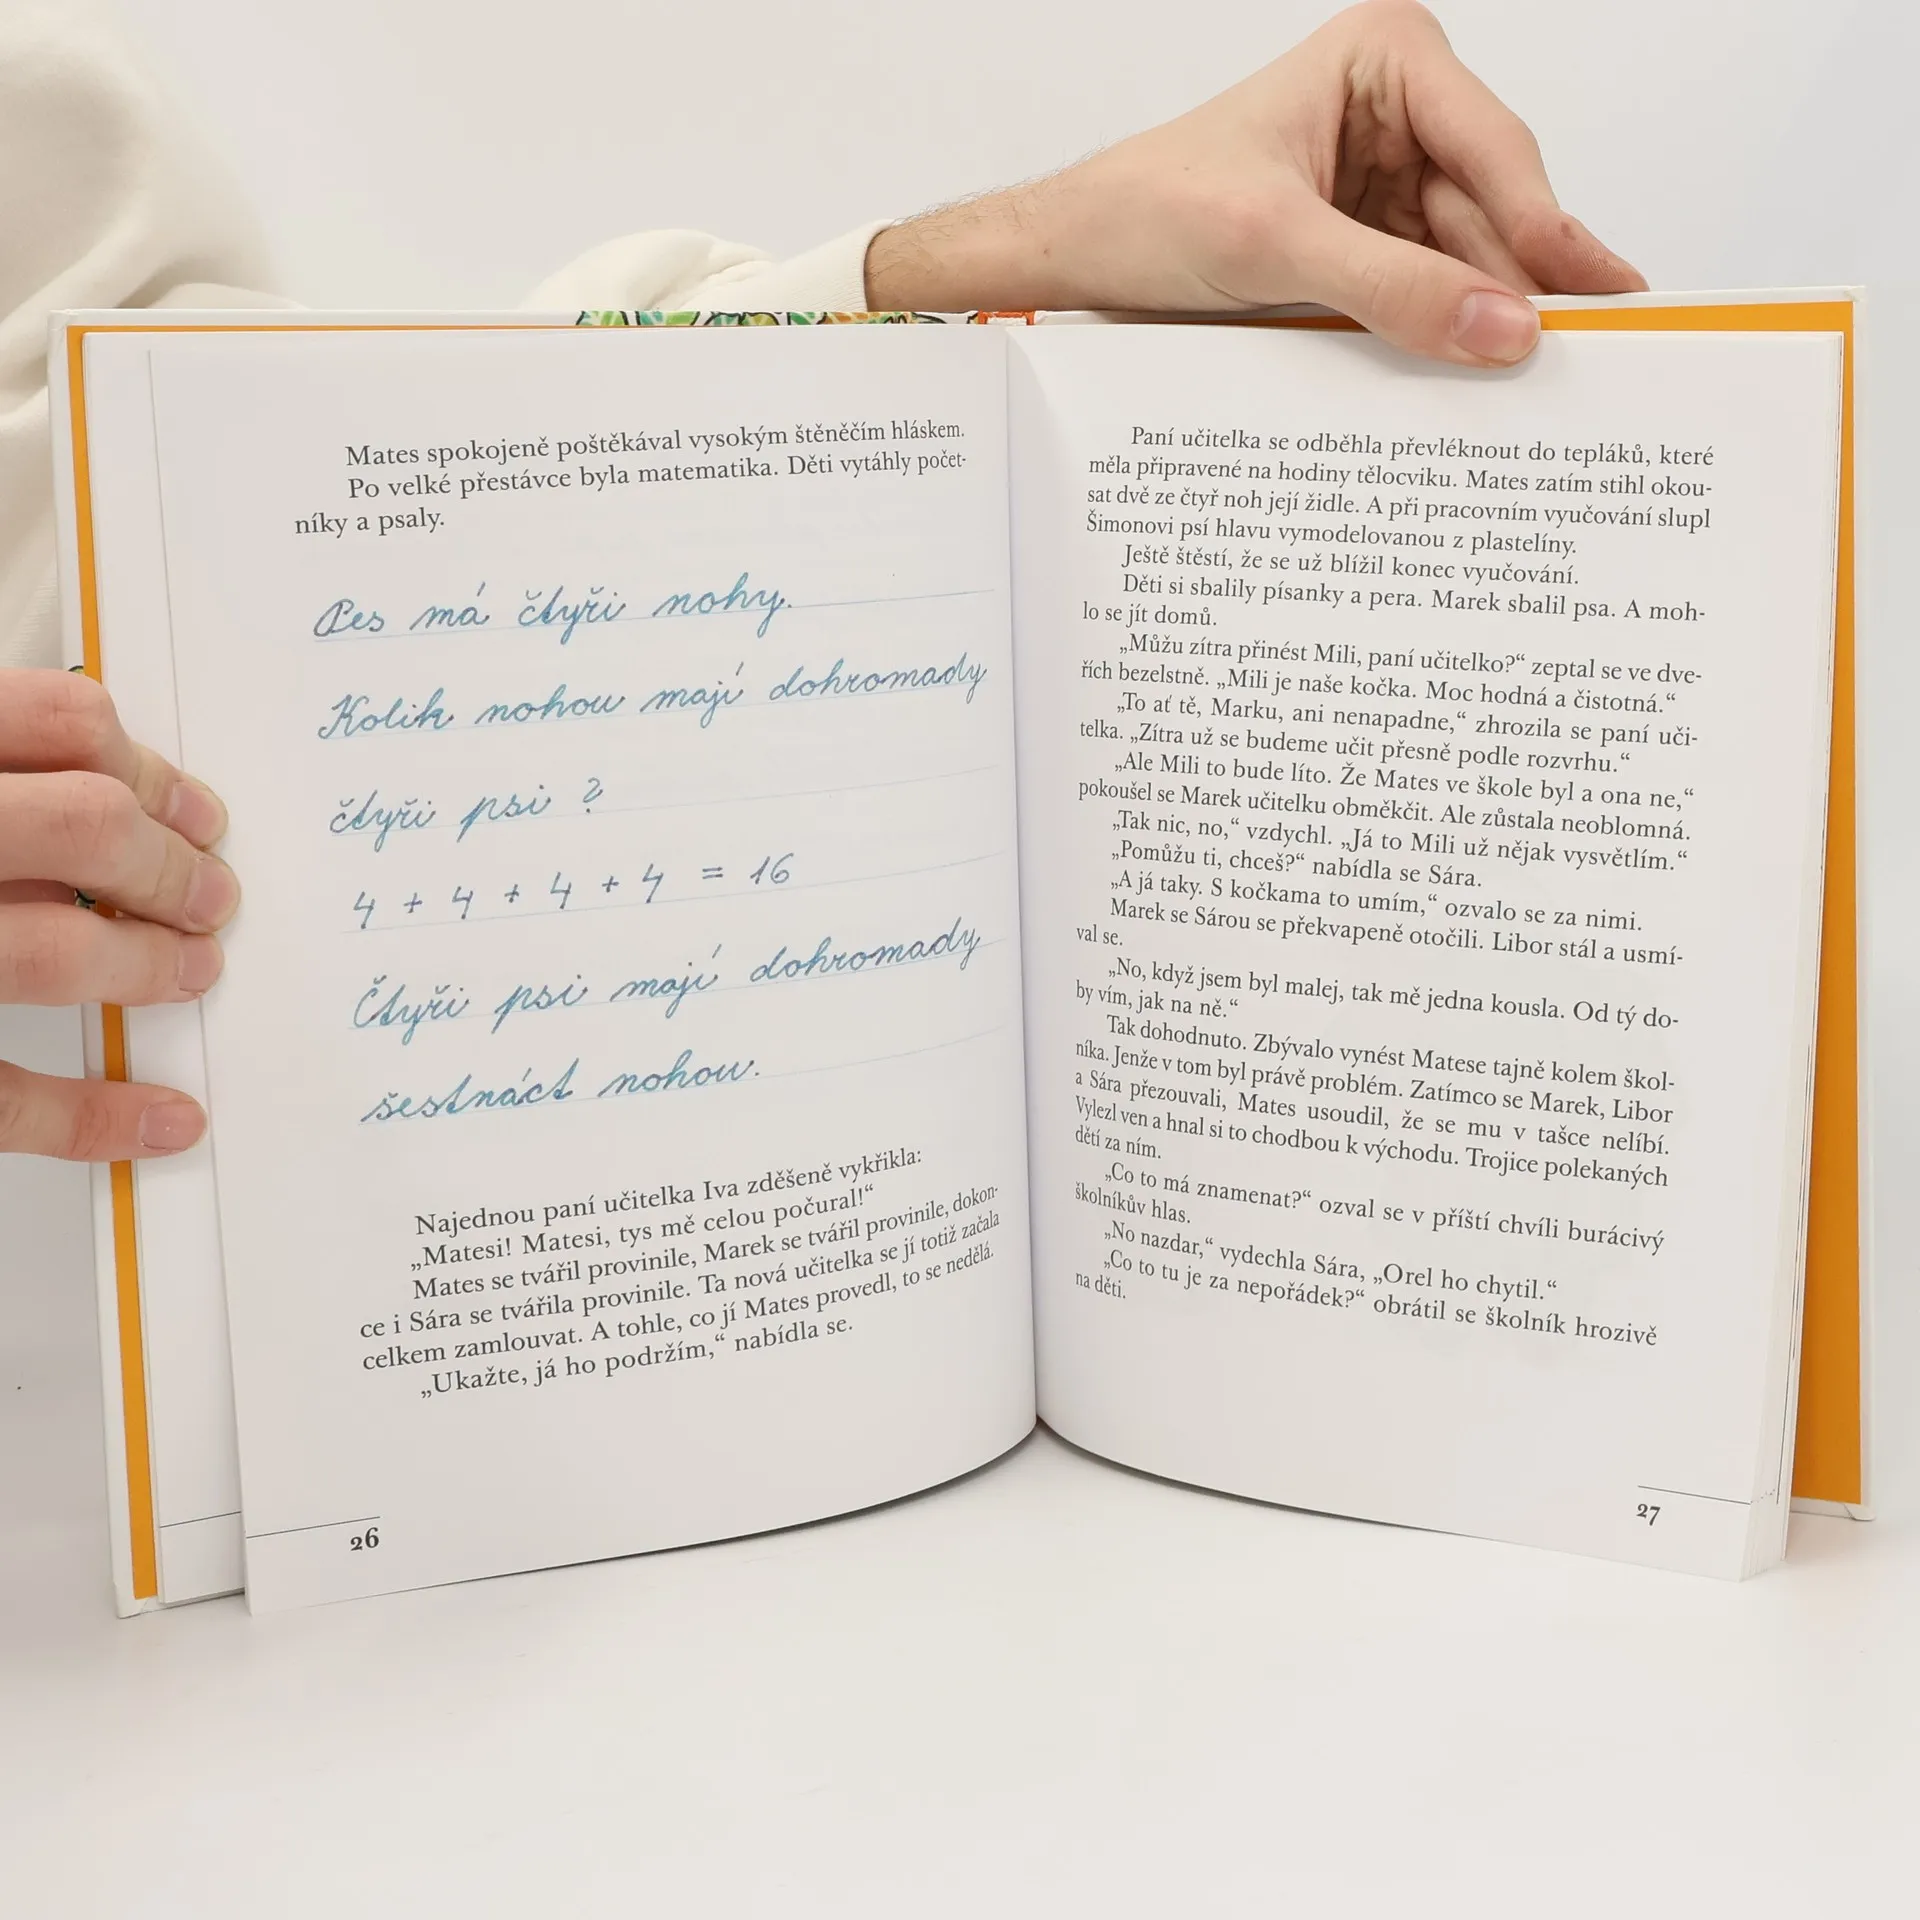 Mates spokojeně poštěkával vysokým štěněčím hláskem.
Po velké přestávce byla matematika. Děti vytáhly počet-
níky a psaly.
Pes má čtyři nohy.
Kolik nohou mají dohromady
čtyři psi ?
4 + 4 + 4 + 4 = 16
Čtyři psi mají dohromady
šestnáct nohou.
Najednou paní učitelka Iva zděšeně vykřikla:
„Matesi! Matesi, tys mě celou počural!“
Mates se tvářil provinile, Marek se tvářil provinile, dokon-
ce i Sára se tvářila provinile. Ta nová učitelka se jí totiž začala
celkem zamlouvat. A tohle, co jí Mates provedl, to se nedělá.
„Ukažte, já ho podržím,“ nabídla se.
26
Paní učitelka se odběhla převléknout do tepláků, které
měla připravené na hodiny tělocviku. Mates zatím stihl okou-
sat dvě ze čtyř noh její židle. A při pracovním vyučování slupl
Šimonovi psí hlavu vymodelovanou z plastelíny.
Ještě štěstí, že se už blížil konec vyučování.
Děti si sbalily písanky a pera. Marek sbalil psa. A moh-
lo se jít domů.
„Můžu zítra přinést Mili, paní učitelko?“ zeptal se ve dve-
řích bezelstně. „Mili je naše kočka. Moc hodná a čistotná.“
„To ať tě, Marku, ani nenapadne,“ zhrozila se paní uči-
telka. „Zítra už se budeme učit přesně podle rozvrhu.“
„Ale Mili to bude líto. Že Mates ve škole byl a ona ne,“
pokoušel se Marek učitelku obměkčit. Ale zůstala neoblomná.
„Tak nic, no,“ vzdychl. „Já to Mili už nějak vysvětlím.“
„Pomůžu ti, chceš?“ nabídla se Sára.
„A já taky. S kočkama to umím,“ ozvalo se za nimi.
Marek se Sárou se překvapeně otočili. Libor stál a usmí-
val se.
„No, když jsem byl malej, tak mě jedna kousla. Od tý do-
by vím, jak na ně.“
Tak dohodnuto. Zbývalo vynést Matese tajně kolem škol-
níka. Jenže v tom byl právě problém. Zatímco se Marek, Libor
a Sára přezouvali, Mates usoudil, že se mu v tašce nelíbí.
Vylezl ven a hnal si to chodbou k východu. Trojice polekaných
dětí za ním.
„Co to má znamenat?“ ozval se v příští chvíli burácivý
školníkův hlas.
„No nazdar,“ vydechla Sára, „Orel ho chytil.“
„Co to tu je za nepořádek?“ obrátil se školník hrozivě
na děti.
27